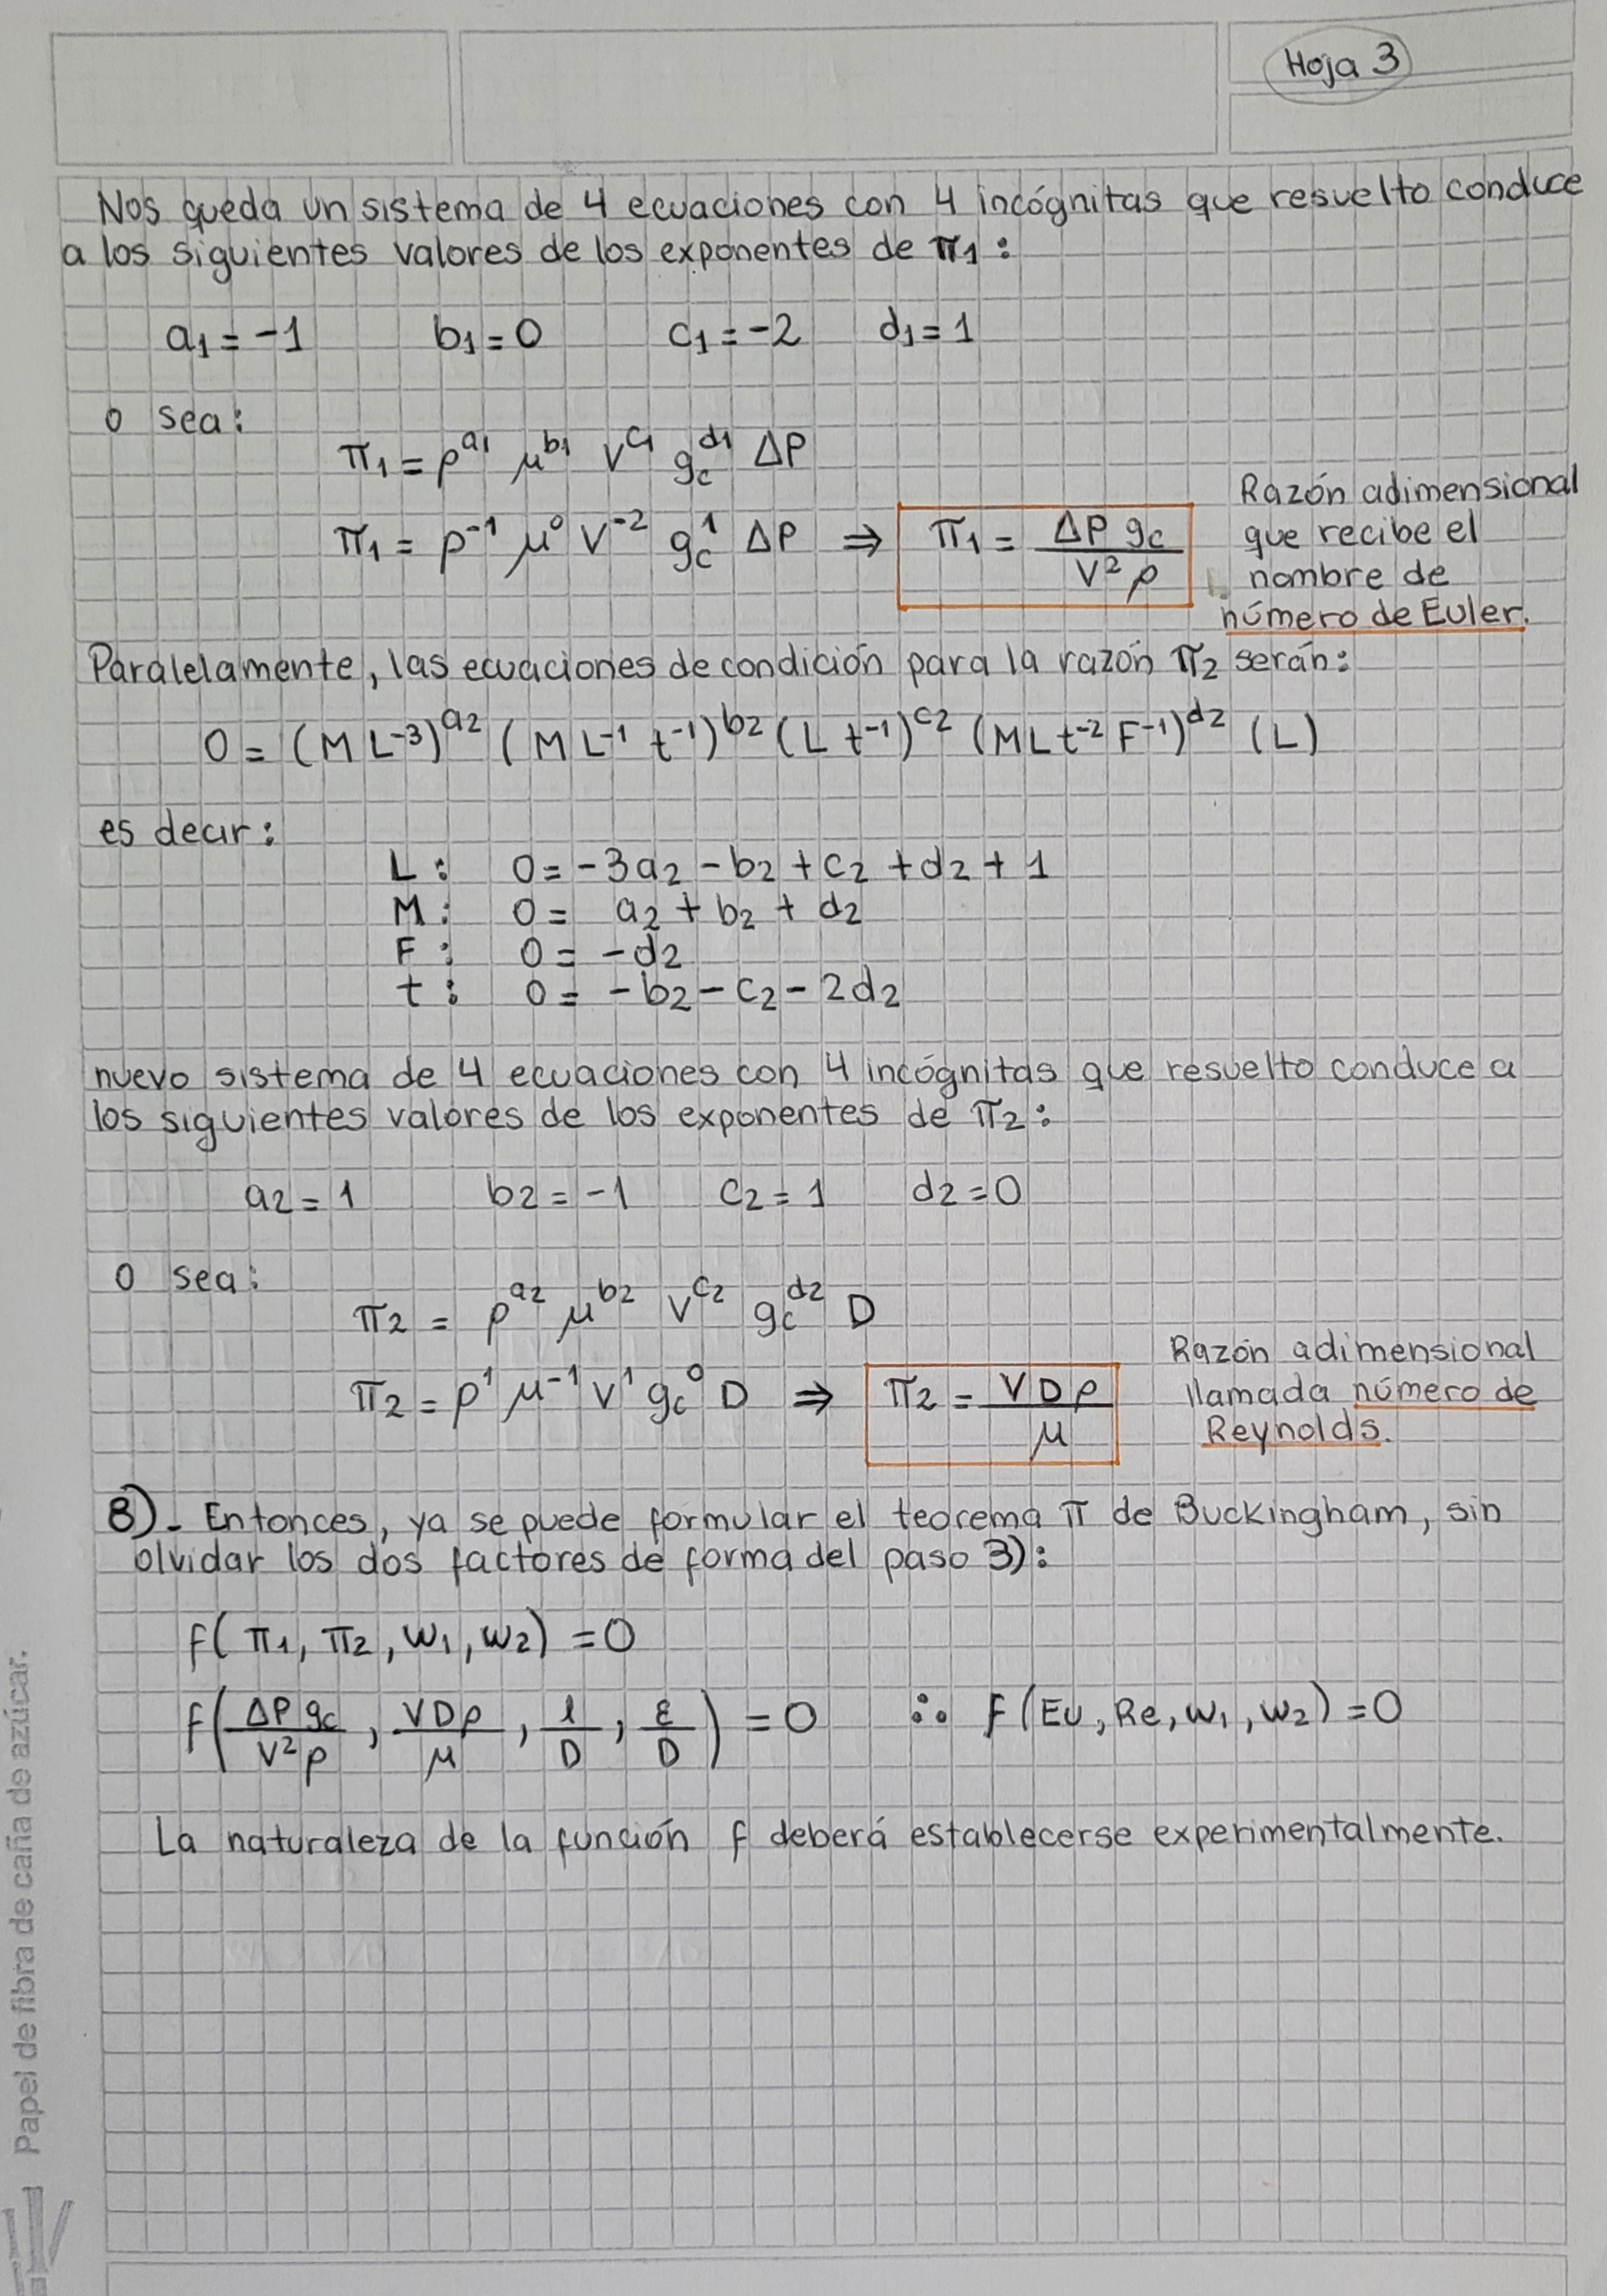 Hoja 3
Nos queda un sistema de 4 ecuaciones con 4 incógnitas que resuelto conduce
a los siguientes valores de los exponentes de π1:
a1 = -1 b1 = 0 c1 = -2 d1 = 1
o sea:
π1 = ρ^a1 μ^b1 V^c1 gc^d1 ΔP
π1 = ρ^-1 μ^0 V^-2 gc^1 ΔP ⇒ π1 = ΔP gc / V² ρ
Razón adimensional
que recibe el
nombre de
número de Euler.
Paralelamente, las ecuaciones de condición para la razón π2 serán:
0 = (M L^-3)^a2 (M L^-1 t^-1)^b2 (L t^-1)^c2 (M L t^-2 F^-1)^d2 (L)
es decir:
L: 0 = -3a2 - b2 + c2 + d2 + 1
M: 0 = a2 + b2 + d2
F: 0 = -d2
t: 0 = -b2 - c2 - 2d2
nuevo sistema de 4 ecuaciones con 4 incógnitas que resuelto conduce a
los siguientes valores de los exponentes de π2:
a2 = 1 b2 = -1 c2 = 1 d2 = 0
o sea:
π2 = ρ^a2 μ^b2 V^c2 gc^d2 D
π2 = ρ^1 μ^-1 V^1 gc^0 D ⇒ π2 = V D ρ / μ
Razón adimensional
llamada número de
Reynolds.
8)- Entonces, ya se puede formular el teorema π de Buckingham, sin
olvidar los dos factores de forma del paso 3):
f(π1, π2, w1, w2) = 0
f(ΔP gc / V² ρ, V D ρ / μ, l / D, ε / D) = 0 ∴ f(Eu, Re, w1, w2) = 0
La naturaleza de la función f deberá establecerse experimentalmente.
Papel de fibra de caña de azúcar.